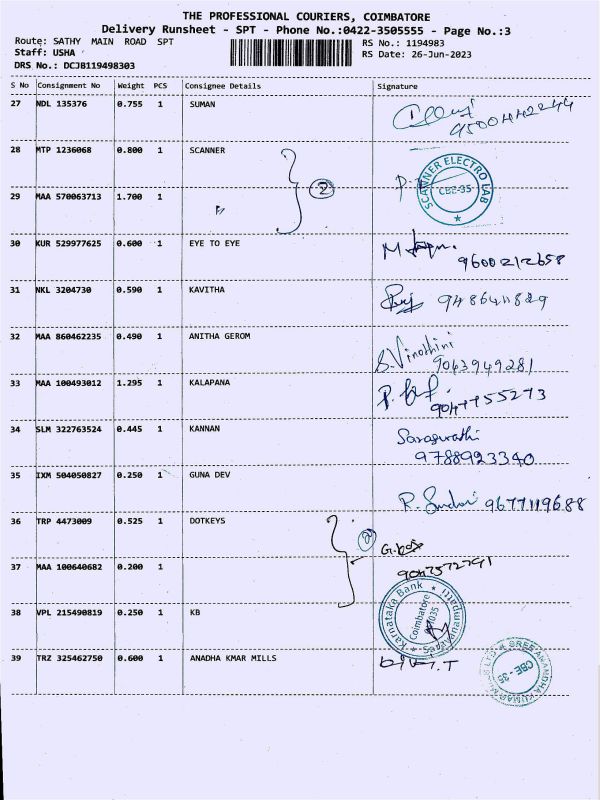 THE PROFESSIONAL COURIERS, COIMBATORE
Delivery Runsheet - SPT - Phone No.:0422-3505555 - Page No.:3
Route: SATHY MAIN ROAD SPT
RS No.: 1194983
Staff: USHA
RS Date: 26-Jun-2023
DRS No.: DCJB119498303
S No Consignment No Weight PCS Consignee Details Signature
27 NDL 135376 0.755 1 SUMAN
9500442244
28 MTP 1236068 0.800 1 SCANNER
2
SCANNER ELECTRO LAB
CBE-35
29 MAA 570063713 1.700 1
30 KUR 529977625 0.600 1 EYE TO EYE
9600212658
31 NKL 3204730 0.590 1 KAVITHA
32 MAA 860462235 0.490 1 ANITHA GEROM
S.Vinothini
9043949281
33 MAA 100493012 1.295 1 KALAPANA
34 SLM 322763524 0.445 1 KANNAN
Saraswathi
9788923340
35 IXM 504050827 0.250 1 GUNA DEV
9677119688
36 TRP 4473009 0.525 1 DOTKEYS
2
37 MAA 100640682 0.200 1
38 VPL 215490819 0.250 1 KB
Karnataka Bank
Coimbatore
39 TRZ 325462750 0.600 1 ANADHA KMAR MILLS
CBE - 35